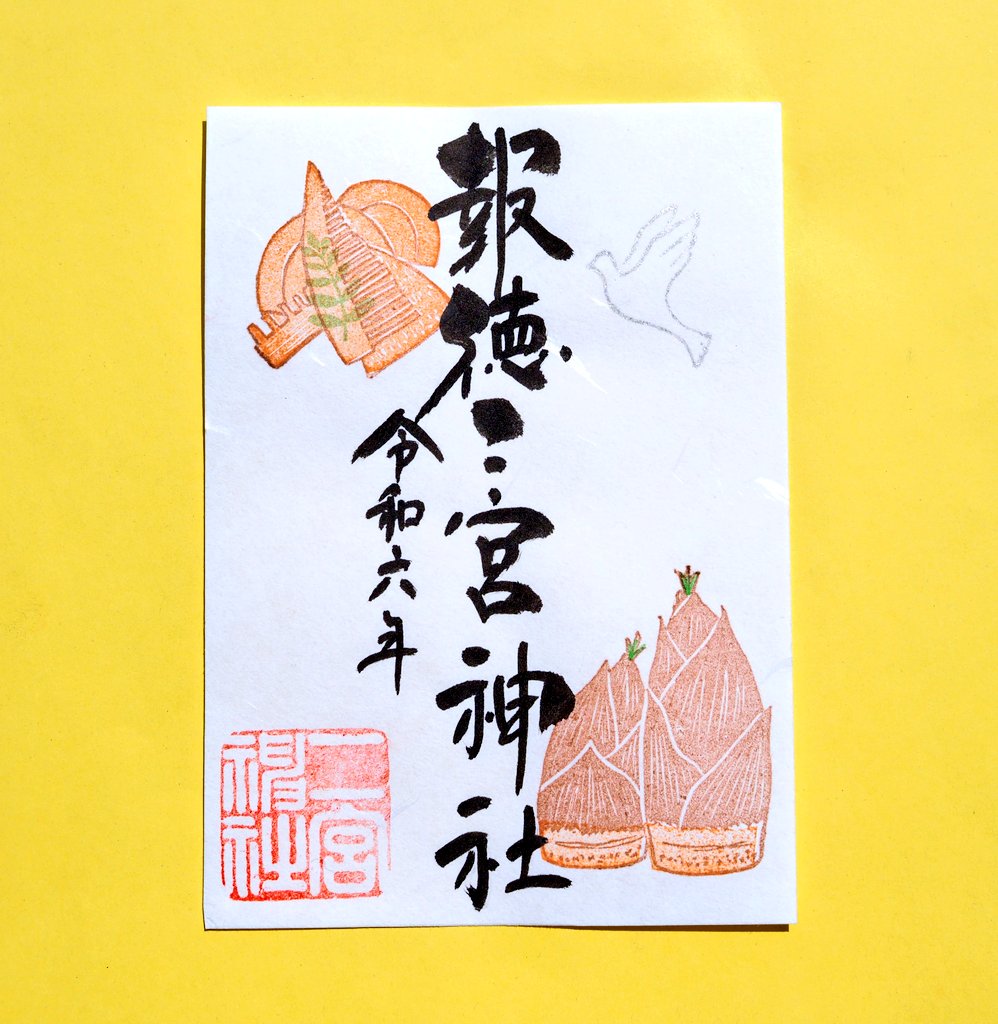 報徳二宮神社
令和六年
二宮
神社